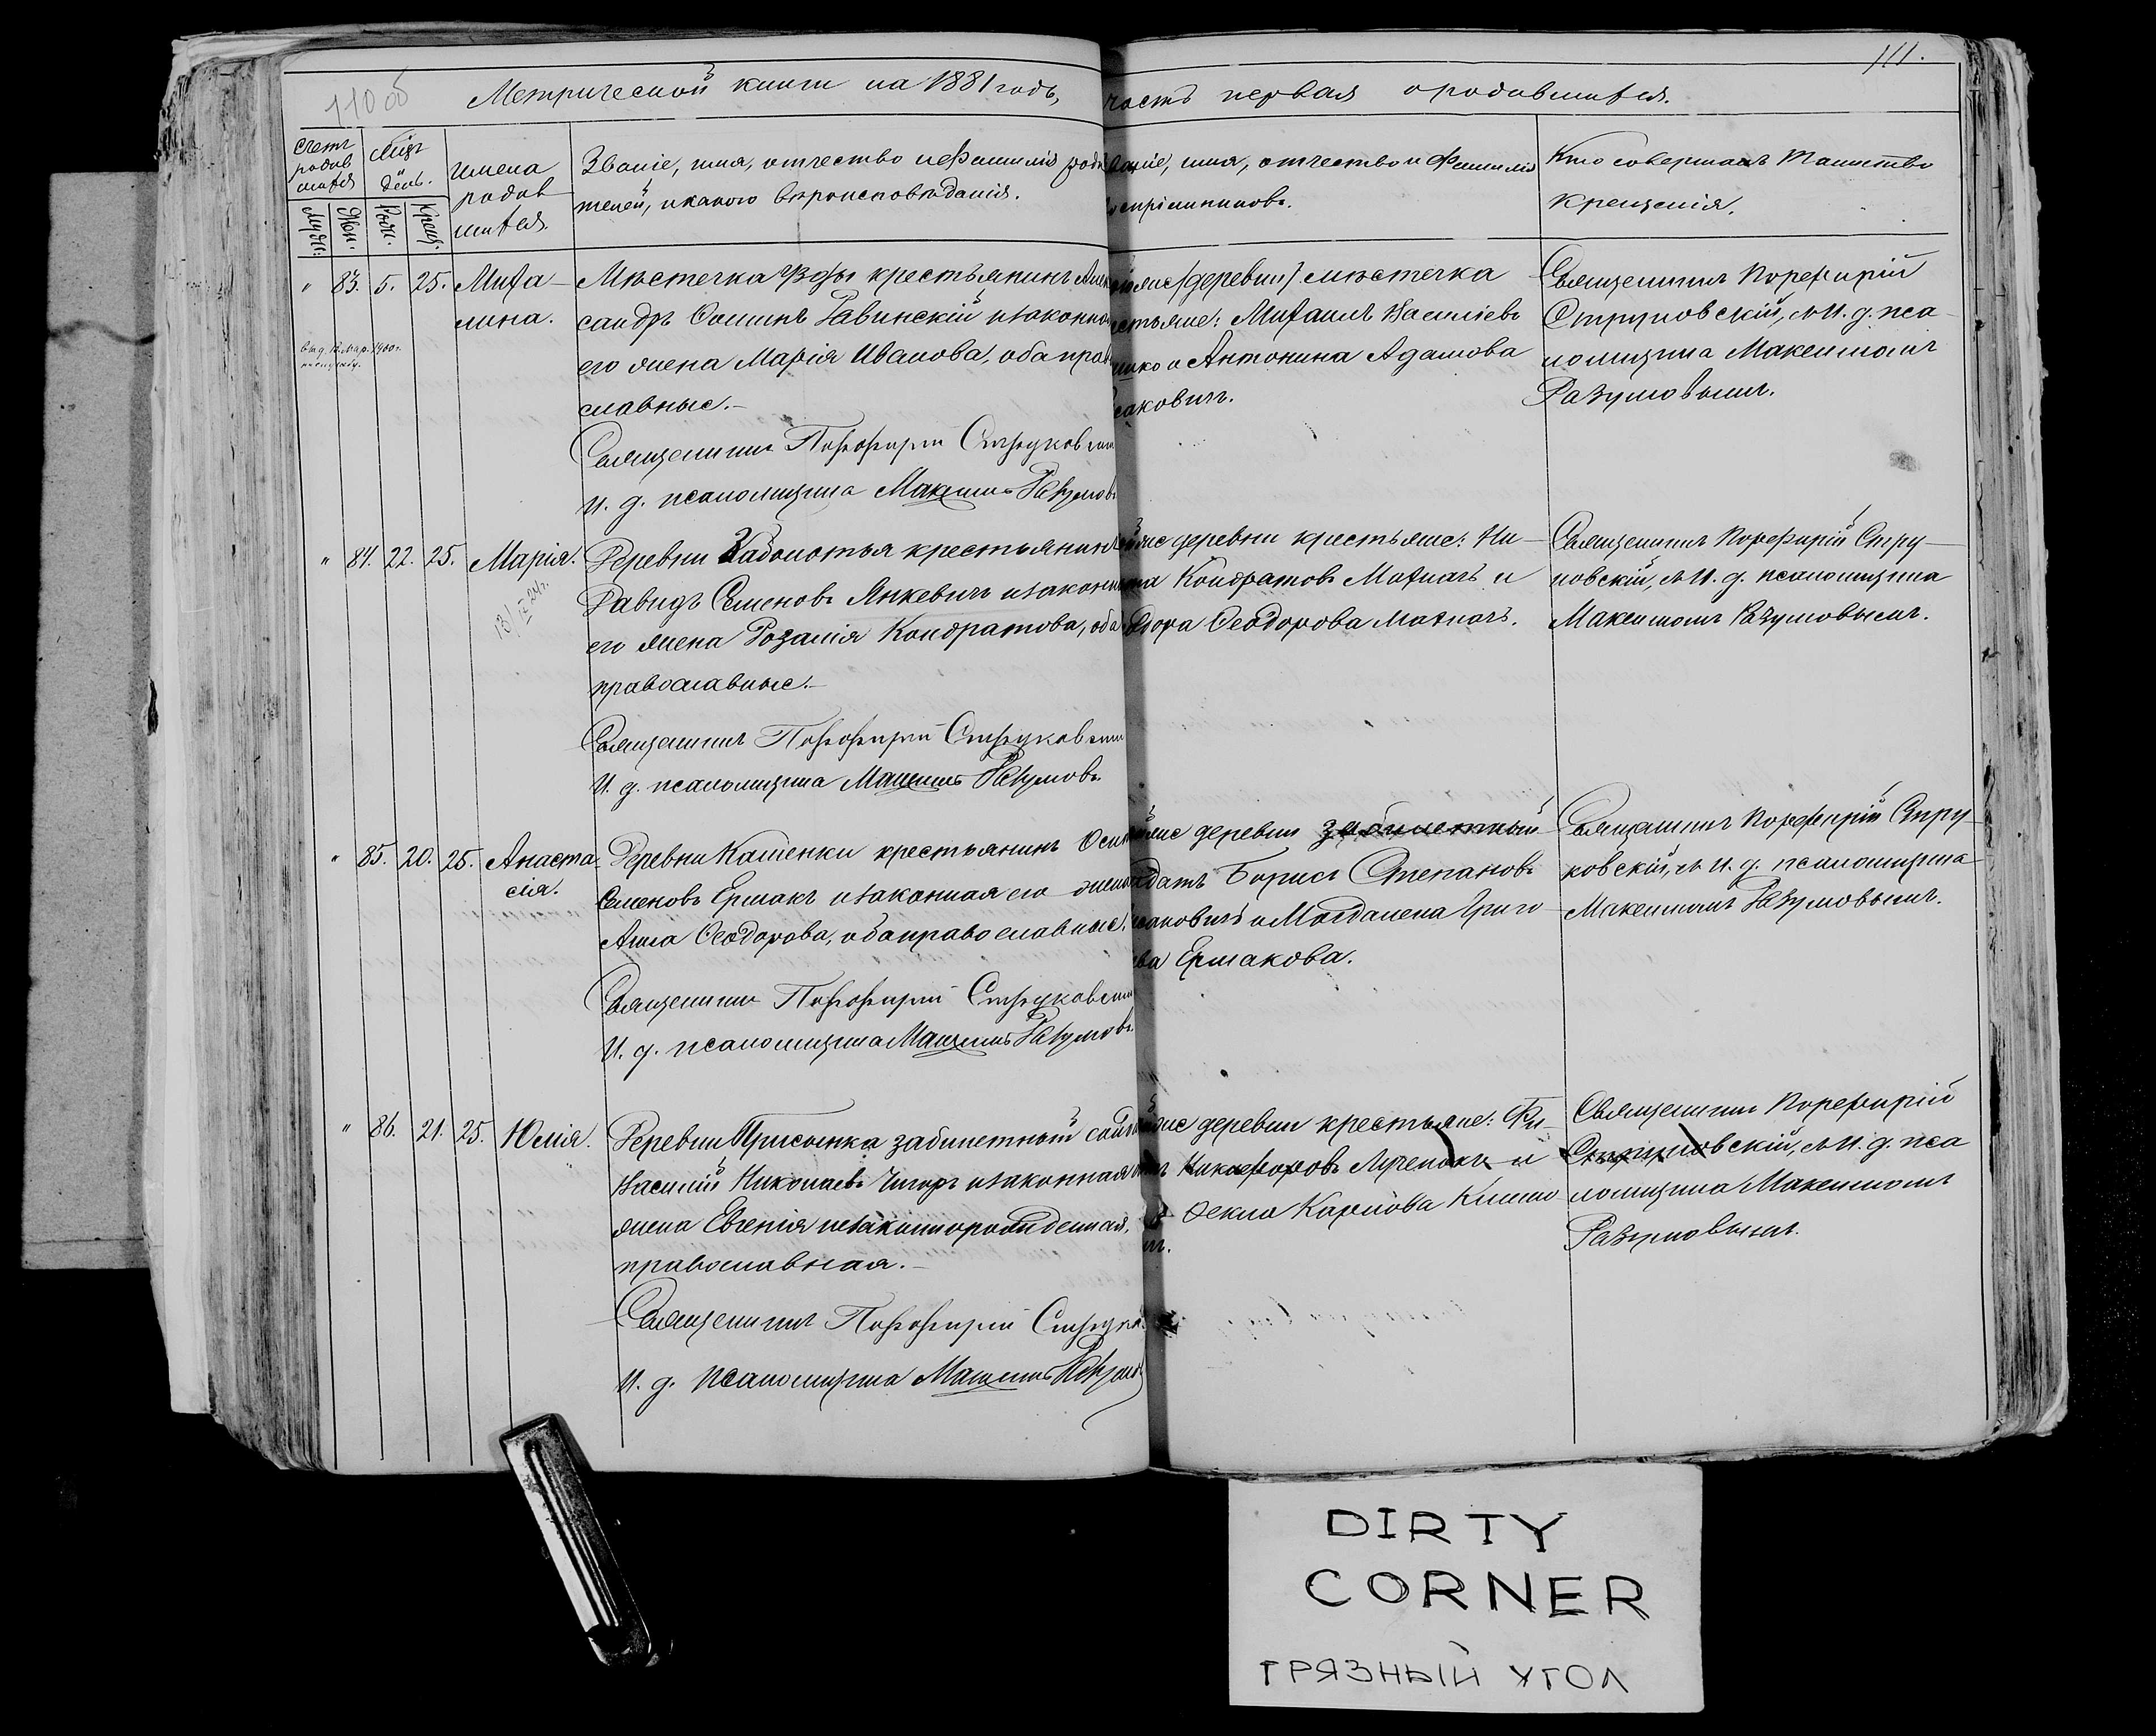 110 об
111.
Метрической книги на 1881 годъ,
часть первая о родившихся.
Счетъ родив шихся
Мѣсъ день.
Муж.
Жен.
Рож.
Крещ.
Имена
родив
шихся.
Званіе, имя, отчество и фамилія роди
телей, и какого вѣроисповѣданія.
Званіе, имя, отчество и фамилія
воспріемниковъ.
Кто совершалъ таинство
крещенія.
" 83. 5. 25. Миха
лина.
Мѣстечка Узды крестьянинъ Алек
сандръ Равинскій и законная
его жена Марія Иванова, оба право
славные.-
Священникъ Порфирій Струковскій
И. д. псаломщика Максимъ Разумовъ
(деревни) мѣстечка
крестьяне: Михаилъ Васильевъ
и Антонина Адамова
Священникъ Порфирій
Струковскій, съ И. д. пса
ломщика Максимомъ
Разумовымъ.
" 84. 22. 25. Марія.
Деревни Заболотья крестьянинъ
Давидъ Семеновъ Янкевичъ и законная
его жена Розалія Кондратова, оба
православные.-
Священникъ Порфирій Струковскій
И. д. псаломщика Максимъ Разумовъ
деревни крестьяне: Ни
кита Кондратовъ Махначъ и
Ѳеодорова Махначъ.
Священникъ Порфирій Стру
ковскій, съ И. д. псаломщика
Максимомъ Разумовымъ.
" 85. 20. 25. Анаста
сія.
Деревни Каменки крестьянинъ Осипъ
Семеновъ Ермакъ и законная его жена
Анна Ѳеодорова, оба православные.
Священникъ Порфирій Струковскій
И. д. псаломщика Максимъ Разумовъ
деревни забилетный
солдатъ Борисъ Степановъ
и Магдалена Григо
рьева Ермакова.
Священникъ Порфирій Стру
ковскій, съ И. д. псаломщика
Максимомъ Разумовымъ.
" 86. 21. 25. Юлія.
Деревни Присынка забилетный солдатъ
Василій Николаевъ Чигиръ и законная
жена Евгенія незаконнорожденная,
православная.-
Священникъ Порфирій Струков
И. д. псаломщика Максимъ Разумовъ
деревни крестьяне: Фи
Никифоровъ Лученокъ и
Ѳекла Карпова Климо
Священникъ Порфирій
Струковскій, съ И. д. пса
ломщика Максимомъ
Разумовымъ.
DIRTY
CORNER
ГРЯЗНЫЙ УГОЛ